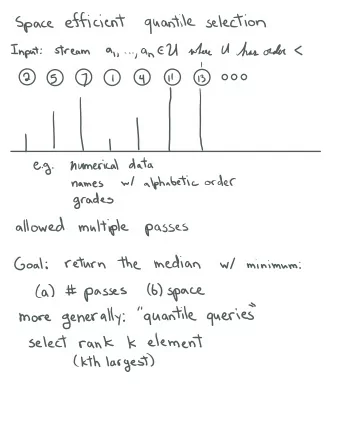 Space efficient quantile selection
Input: stream a₁, ..., aₙ ∈ U where U has order <
2 5 7 1 4 11 13 ooo
e.g. numerical data
names w/ alphabetic order
grades
allowed multiple passes
Goal: return the median w/ minimum:
(a) # passes (b) space
more generally: "quantile queries"
select rank k element
(kth largest)